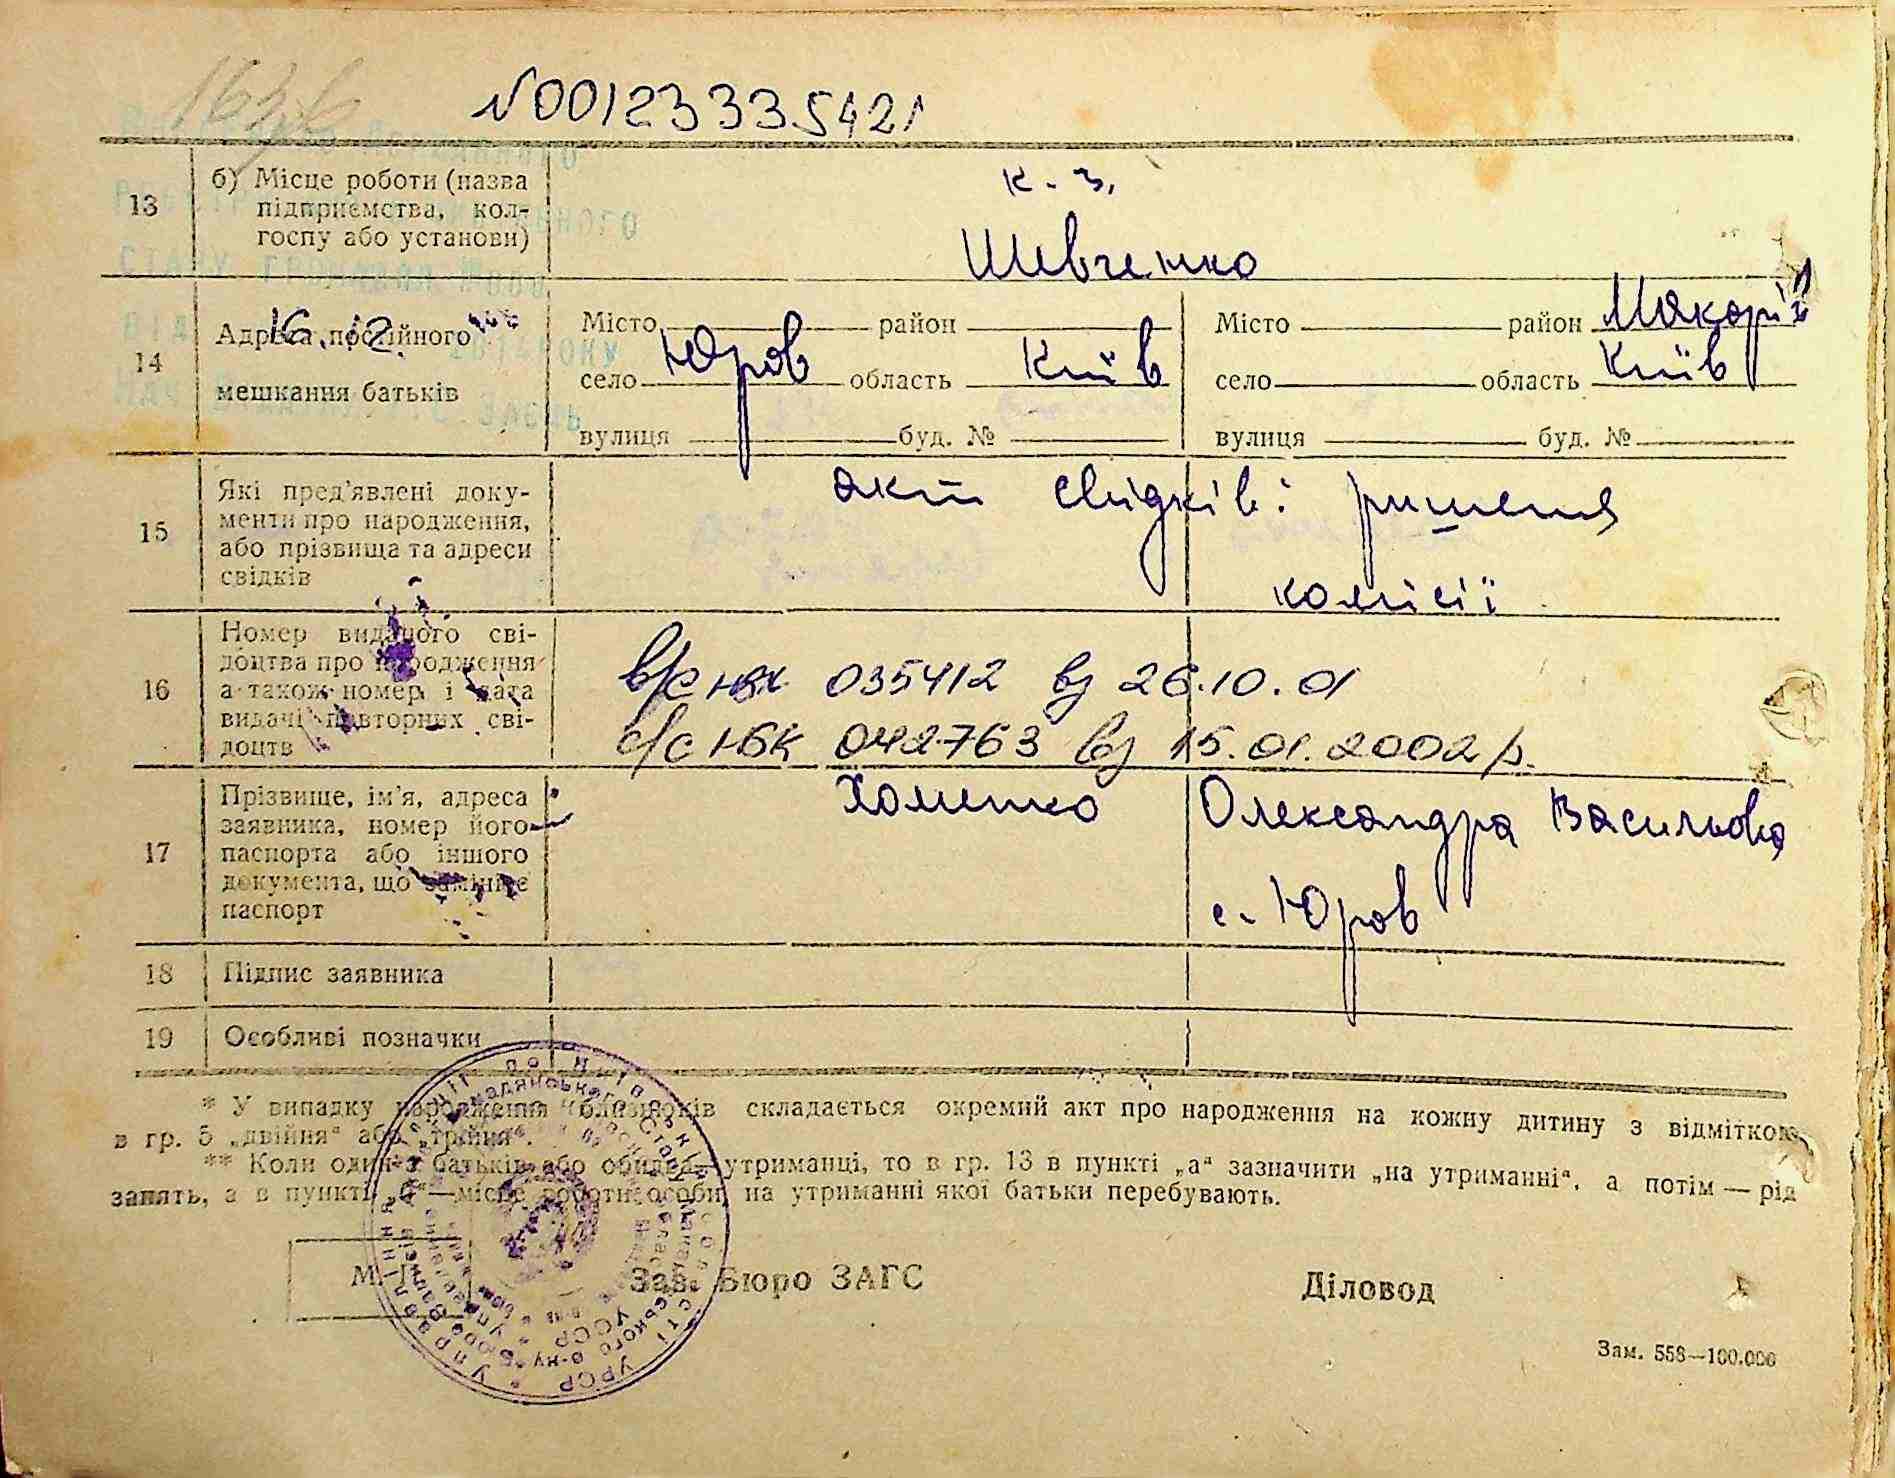 N00123335421
13
б) Місце роботи (назва
підприємства, кол-
госпу або установи)
к. з.
Шевченко
14
Адреса постійного
мешкання батьків
16.12.
Місто район
Юров Київ
село область
вулиця буд. №
Місто район
Київ
село область
вулиця буд. №
15
Які пред'явлені доку-
менти про народження,
або прізвища та адреси
свідків
акт свідків і ришення
комісії
16
Номер виданого сві-
доцтва про народження
а також номер і дата
видачі повторних сві-
доцтв
035412 від 26.10.01
с/с НБК 042763 від 15.01.2002 р.
17
Прізвище, ім'я, адреса
заявника, номер його
паспорта або іншого
документа, що замінює
паспорт
Хоменко Олександра Васильовна
с. Юров
18
Підпис заявника
19
Особливі позначки
* У випадку народження близнюків складається окремий акт про народження на кожну дитину з відміткою
в гр. 5 „двійня“ або „трійня“.
** Коли один з батьків або обидва утриманці, то в гр. 13 в пункті „а“ зазначити „на утриманні“, а потім — рід
занять, а в пункті „б“ — місце роботи особи, на утриманні якої батьки перебувають.
М. П.
Зав. Бюро ЗАГС
Діловод
Зам. 558—100.000